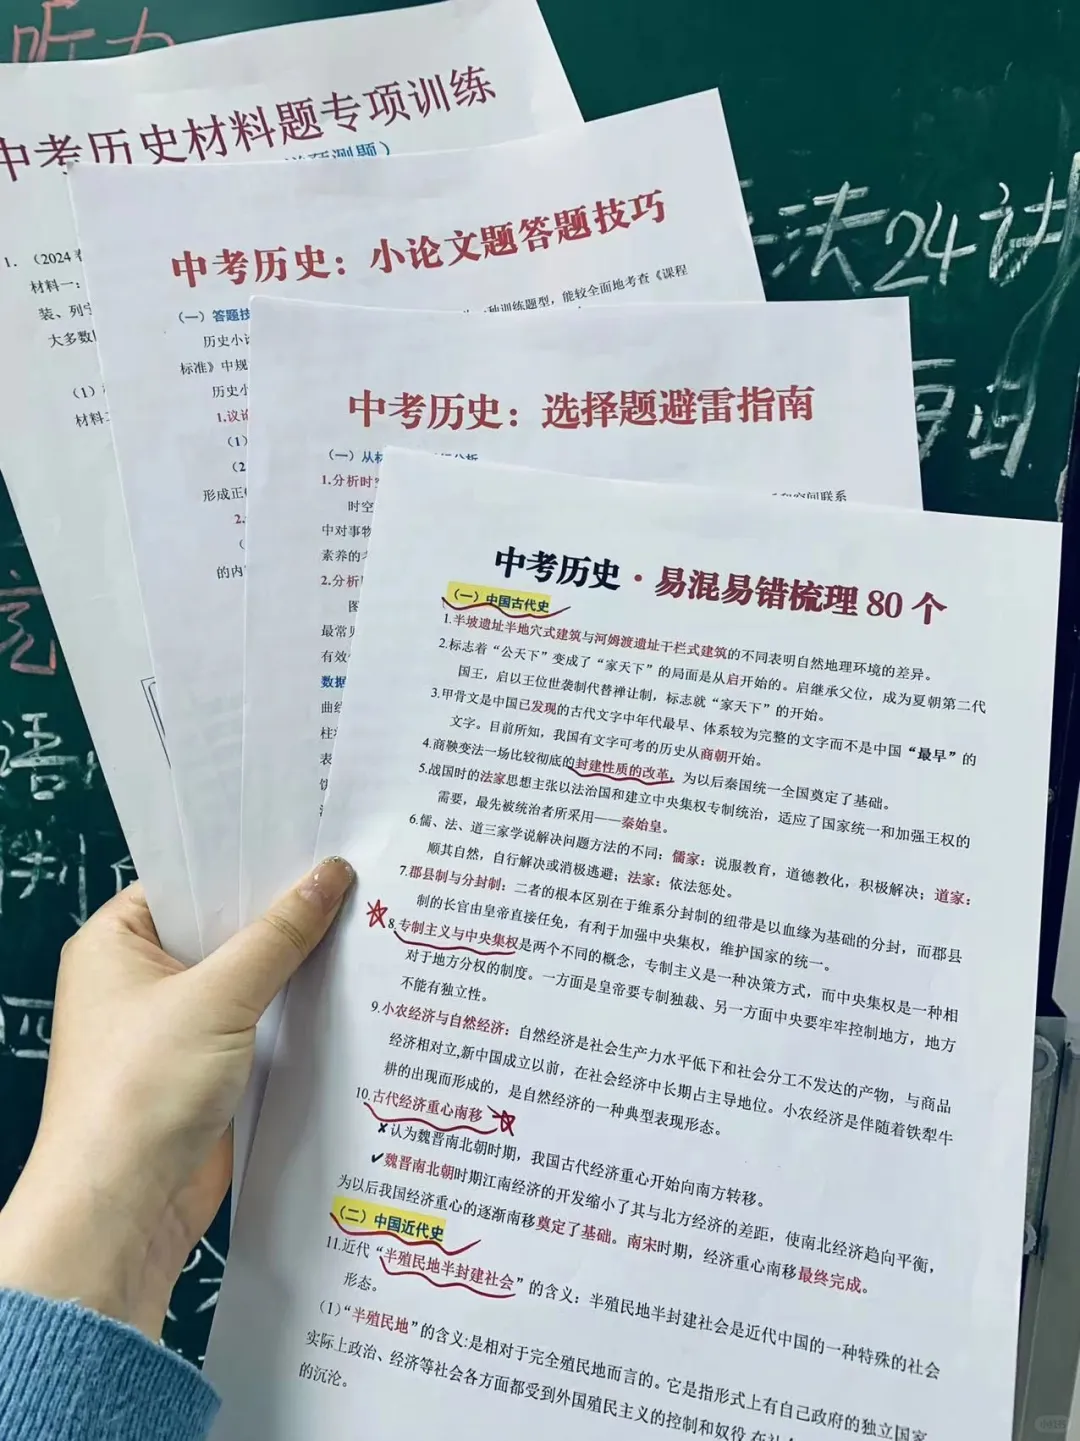 听力
中考历史材料题专项训练
预测题）
1.（2024
材料一：
装、列宁
大多数
（1）
材料二
中考历史：小论文题答题技巧
（一）答题技
种训练题型，能较全面地考查《课程
历史小论
标准》中规
历史小
1.议论
（1）
（2
形成正确
2.
（
的内
中考历史：选择题避雷指南
（一）从材
1.分析时空
和空间联系
时空
中对事物
素养的考
2.分析
图
最常见
有效
数据
曲线
柱
表
饮
中考历史·易混易错梳理80个
（一）中国古代史
1.半坡遗址半地穴式建筑与河姆渡遗址干栏式建筑的不同表明自然地理环境的差异。
2.标志着“公天下”变成了“家天下”的局面是从启开始的。启继承父位，成为夏朝第二代
国王，启以王位世袭制代替禅让制，标志就“家天下”的开始。
3.甲骨文是中国已发现的古代文字中年代最早、体系较为完整的文字而不是中国“最早”的
文字。目前所知，我国有文字可考的历史从商朝开始。
4.商鞅变法一场比较彻底的封建性质的改革，为以后秦国统一全国奠定了基础。
5.战国时的法家思想主张以法治国和建立中央集权专制统治，适应了国家统一和加强王权的
需要，最先被统治者所采用——秦始皇。
6.儒、法、道三家学说解决问题方法的不同：儒家：说服教育，道德教化，积极解决；道家：
顺其自然，自行解决或消极逃避；法家：依法惩处。
7.郡县制与分封制：二者的根本区别在于维系分封制的纽带是以血缘为基础的分封，而郡县
制的长官由皇帝直接任免，有利于加强中央集权，维护国家的统一。
8.专制主义与中央集权是两个不同的概念，专制主义是一种决策方式，而中央集权是一种相
对于地方分权的制度。一方面是皇帝要专制独裁、另一方面中央要牢牢控制地方，地方
不能有独立性。
9.小农经济与自然经济：自然经济是社会生产力水平低下和社会分工不发达的产物，与商品
经济相对立,新中国成立以前，在社会经济中长期占主导地位。小农经济是伴随着铁犁牛
耕的出现而形成的，是自然经济的一种典型表现形态。
10.古代经济重心南移
✘认为魏晋南北朝时期，我国古代经济重心开始向南方转移。
✔魏晋南北朝时期江南经济的开发缩小了其与北方经济的差距，使南北经济趋向平衡，
为以后我国经济重心的逐渐南移奠定了基础。南宋时期，经济重心南移最终完成。
（二）中国近代史
11.近代“半殖民地半封建社会”的含义：半殖民地半封建社会是近代中国的一种特殊的社会
形态。
（1）“半殖民地”的含义:是相对于完全殖民地而言的。它是指形式上有自己政府的独立国家
实际上政治、经济等社会各方面都受到外国殖民主义的控制和奴役
的沉沦。
法24计
语
判